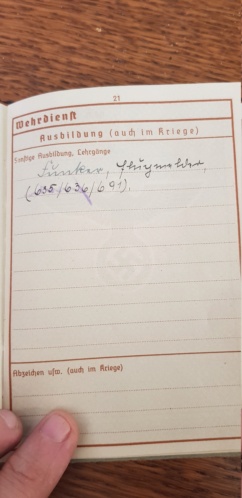 21
Wehrdienst
Ausbildung (auch im Kriege)
Sonstige Ausbildung, Lehrgänge
Funker, Flugmelder,
(635/636/691).
Abzeichen usw. (auch im Kriege)